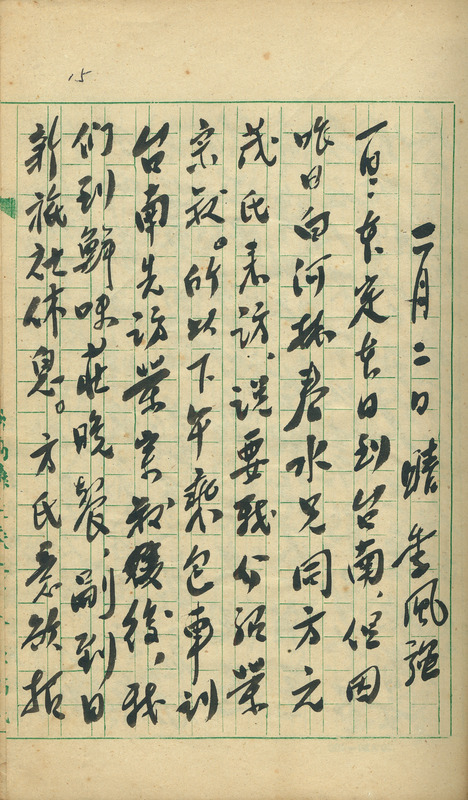 15
二月二日 晴 季風強
一早本定本日到台南，但因
昨日白河林春水兄同方元
茂氏來訪、說要我介紹榮
宗叔。所以下午乘包車到
台南先訪榮宗叔後，我
們到鮮味莊晚餐，副到日
新旅社休息。方氏意欲招